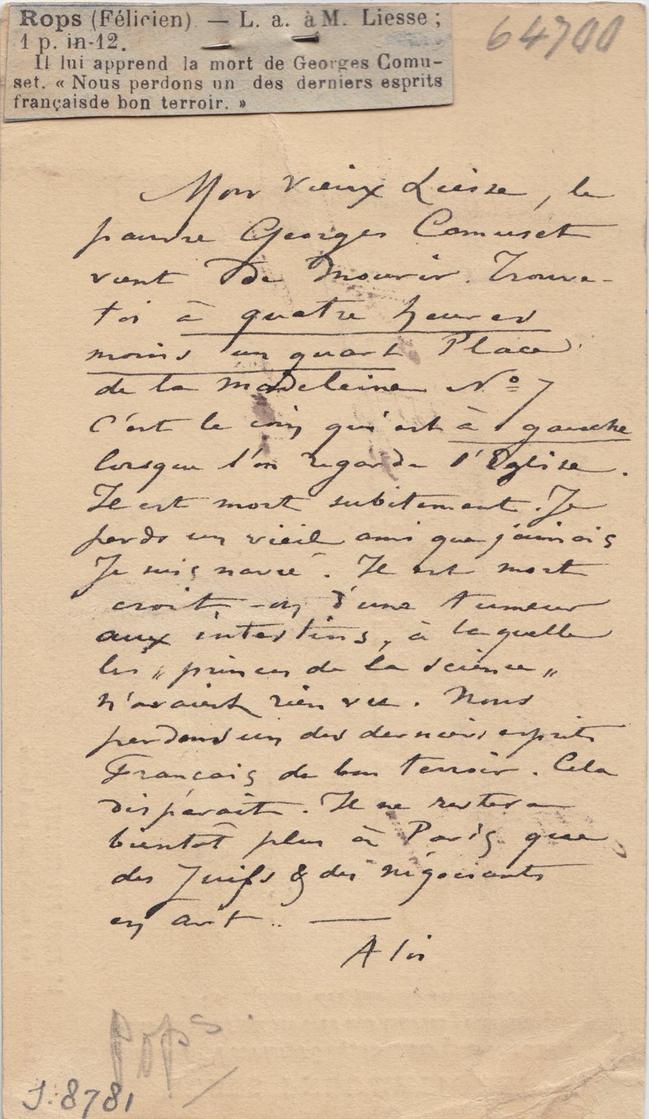 Rops (Félicien) — L. a. à M. Liesse ;
1 p. in-12.
Il lui apprend la mort de Georges Comu-
set. « Nous perdons un des derniers esprits
françaisde bon terroir. »
64700
Mon vieux Liesse, le
pauvre Georges Comuset
vient de mourir. Trouve-
toi à quatre heures
moins un quart Place
de la Madeleine Nº 7
C'est le coin qui est à gauche
lorsque l'on regarde l'Eglise.
Il est mort subitement. Je
perds un vieil ami que j'aimais
Je suis navré. Il est mort
croit-on d'une tumeur
aux intestins, à laquelle
les „ princes de la science „
n'avaient rien vu. Nous
perdons un des derniers esprits
Français de bon terroir. Cela
disparait. Il ne restera
bientôt plus à Paris que
des Juifs & des négociants
en art. —
A toi
Rops
J. 8781